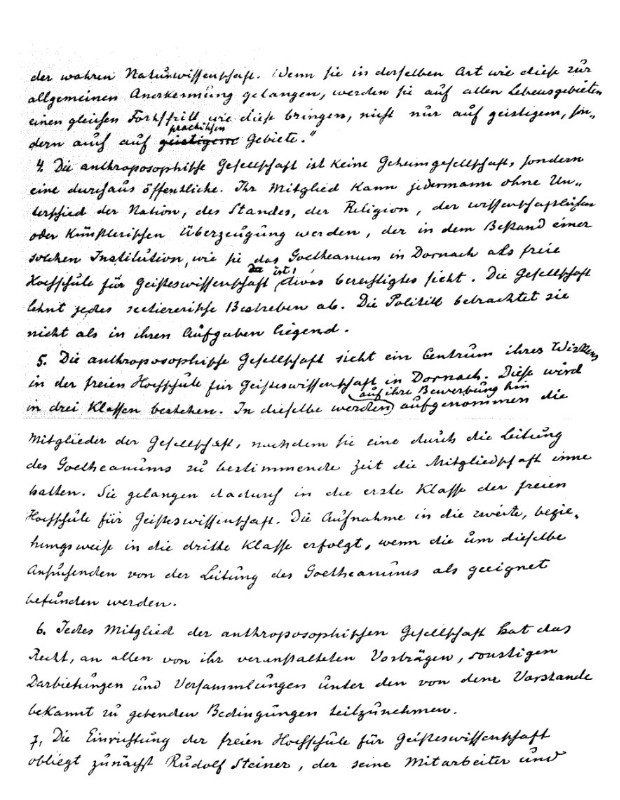 der wahren Naturwissenschaft. Wenn sie in derselben Art wie diese zur
allgemeinen Anerkennung gelangen, werden sie auf allen Lebensgebieten
einen gleichen Fortschritt wie diese bringen, nicht nur auf geistigem, son-
dern auch auf geistigem praktischem Gebiete."
4. Die anthroposophische Gesellschaft ist keine Geheimgesellschaft, sondern
eine durchaus öffentliche. Ihr Mitglied kann jedermann ohne Un-
terschied der Nation, des Standes, der Religion, der wissenschaftlichen
oder künstlerischen Überzeugung werden, der in dem Bestand einer
solchen Institution, wie sie das Goetheanum in Dornach als freie
Hochschule für Geisteswissenschaft ist, etwas berechtigtes sieht. Die Gesellschaft
lehnt jedes sectiererische Bestreben ab. Die Politik betrachtet sie
nicht als in ihren Aufgaben liegend.
5. Die anthroposophische Gesellschaft sieht ein Centrum ihres Wirkens
in der freien Hochschule für Geisteswissenschaft in Dornach. Diese wird
in drei Klassen bestehen. In dieselbe werden auf ihre Bewerbung hin aufgenommen die
Mitglieder der Gesellschaft, nachdem sie eine durch die Leitung
des Goetheanums zu bestimmende Zeit die Mitgliedschaft inne
hatten. Sie gelangen dadurch in die erste Klasse der freien
Hochschule für Geisteswissenschaft. Die Aufnahme in die zweite, bezie-
hungsweise in die dritte Klasse erfolgt, wenn die um dieselbe
Ansuchenden von der Leitung des Goetheanums als geeignet
befunden werden.
6. Jedes Mitglied der anthroposophischen Gesellschaft hat das
Recht, an allen von ihr veranstalteten Vorträgen, sonstigen
Darbietungen und Versammlungen unter den von dem Vorstande
bekannt zu gebenden Bedingungen teilzunehmen.
7. Die Einrichtung der freien Hochschule für Geisteswissenschaft
obliegt zunächst Rudolf Steiner, der seine Mitarbeiter und